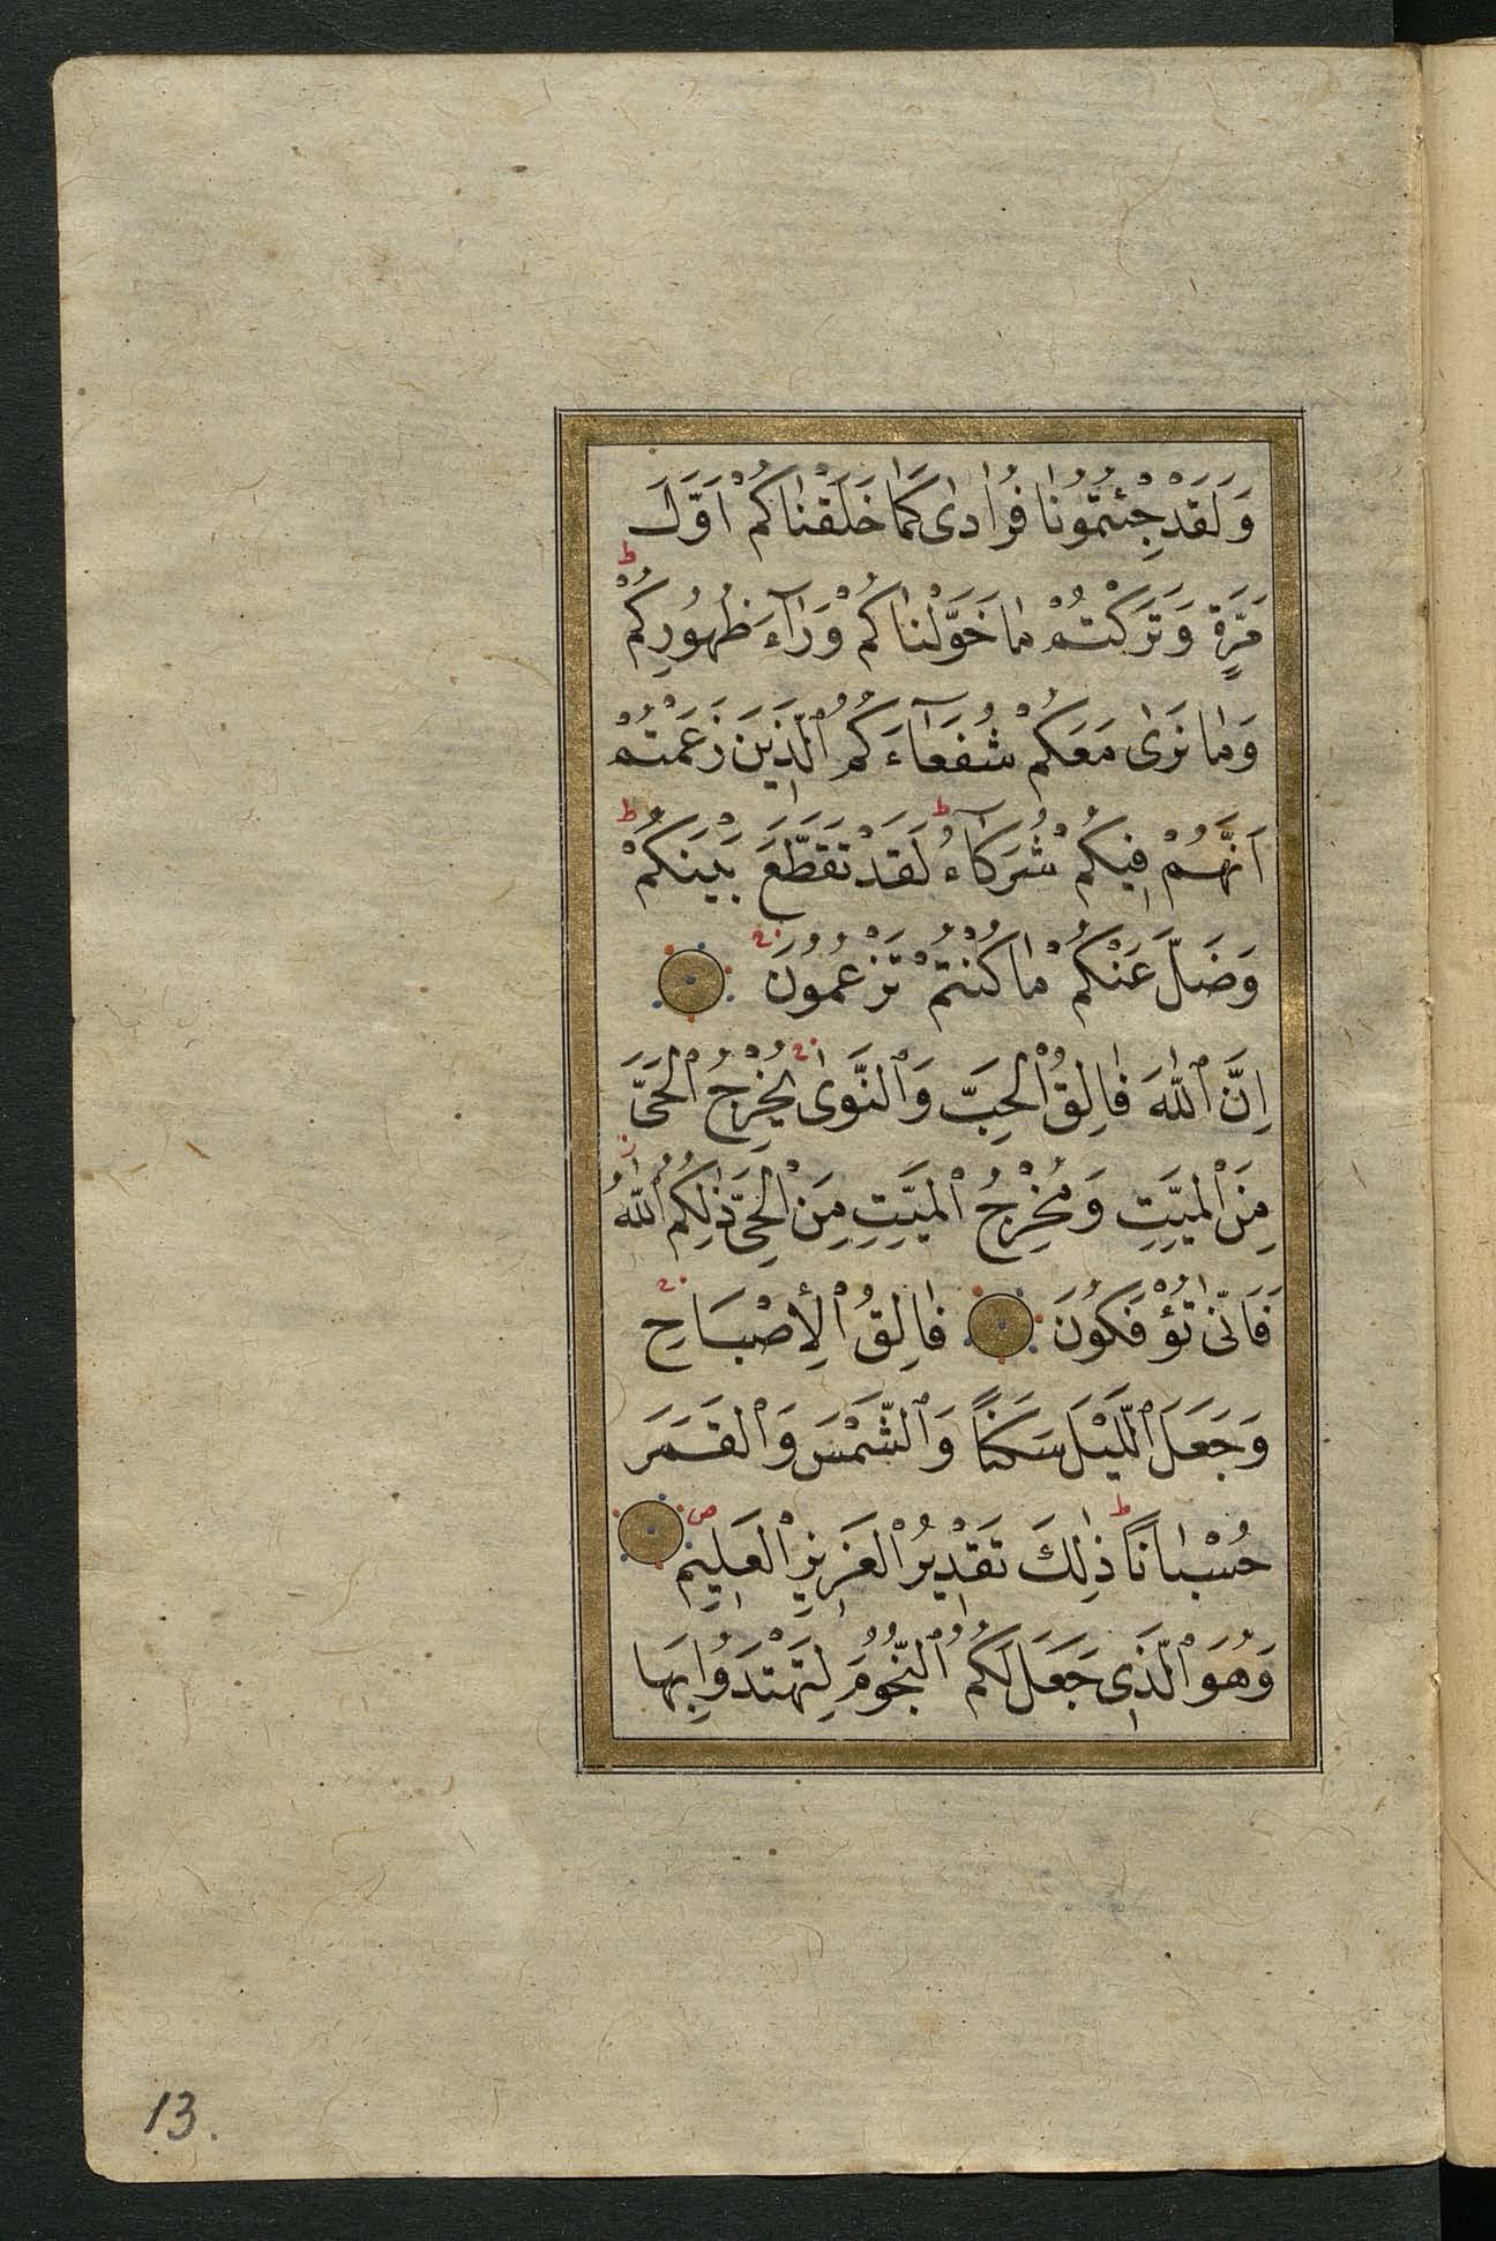 وَلَقَدْ جِئْتُمُونَا فُرَادٰى كَمَا خَلَقْنَاكُمْ اَوَّلَ
ط
مَرَّةٍ وَتَرَكْتُمْ مَا خَوَّلْنَاكُمْ وَرَآءَ ظُهُورِكُمْ
وَمَا نَرٰى مَعَكُمْ شُفَعَآءَكُمُ ٱلَّذِينَ زَعَمْتُمْ
ط ط
اَنَّهُمْ فِيكُمْ شُرَكَآءُ لَقَدْ تَقَطَّعَ بَيْنَكُمْ
وَضَلَّ عَنْكُمْ مَا كُنْتُمْ تَزْعُمُونَ
اِنَّ ٱللّٰهَ فَالِقُ ٱلْحَبِّ وَٱلنَّوٰى يُخْرِجُ ٱلْحَىَّ
ز
مِنَ ٱلْمَيِّتِ وَمُخْرِجُ ٱلْمَيِّتِ مِنَ ٱلْحَىِّ ذٰلِكُمُ ٱللّٰهُ
فَاَنّٰى تُؤْفَكُونَ فَالِقُ ٱلْأِصْبَاحِ
وَجَعَلَ ٱللَّيْلَ سَكَنًا وَٱلشَّمْسَ وَٱلْقَمَرَ
ط ص
حُسْبَانًا ذٰلِكَ تَقْدِيرُ ٱلْعَزِيزِ ٱلْعَلِيمِ
وَهُوَ ٱلَّذِى جَعَلَ لَكُمُ ٱلنُّجُومَ لِتَهْتَدُوا بِهَا
13.